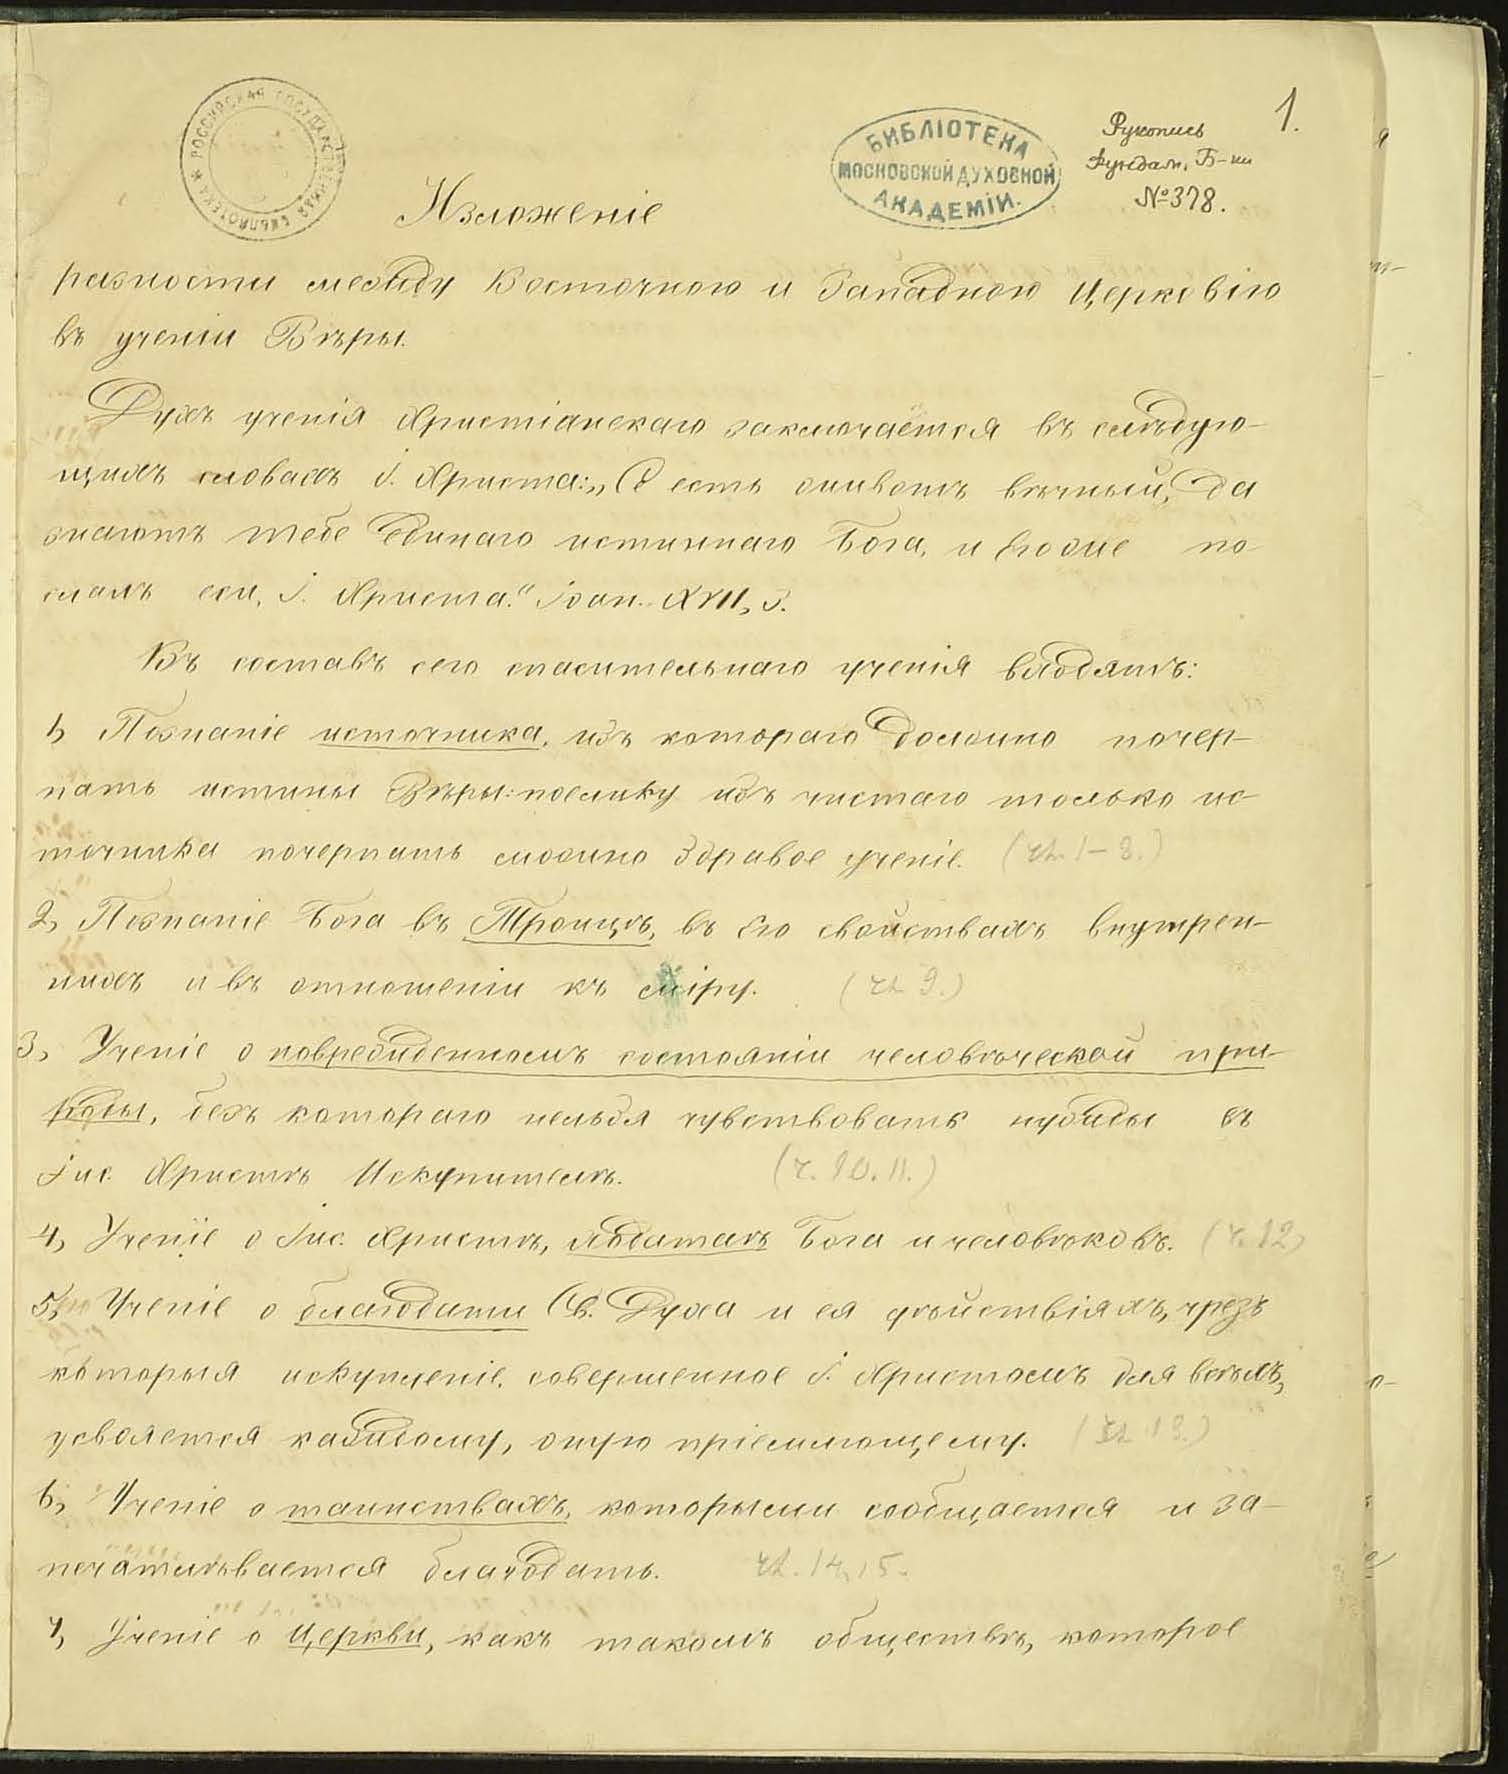 РОССИЙСКАЯ ГОСУДАРСТВЕННАЯ БИБЛИОТЕКА
БИБЛІОТЕКА
МОСКОВСКОЙ ДУХОВНОЙ
АКАДЕМІИ.
Рукопись
Фундам. Б-ки
№ 378.
1.
Изложеніе
разности между Восточною и Западною Церковію
въ ученіи Вѣры.
Духъ ученія Христіанскаго заключается въ слѣдую-
щихъ словахъ І. Христа: „Се есть животъ вѣчный, да
знаютъ тебе единаго истиннаго Бога, и Егоже по-
слалъ еси, І. Христа." Іоан. XVII, 3.
Въ составъ сего спасительнаго ученія входятъ:
1, Познаніе источника, изъ котораго должно почер-
пать истины Вѣры: поелику изъ чистаго только ис-
точника почерпать можно здравое ученіе. (чл. 1-8.)
2, Познаніе Бога въ Троицѣ, въ Его свойствахъ внутрен-
нихъ и въ отношеніи къ міру. (чл 9.)
3, Ученіе о поврежденномъ состояніи человѣческой при-
роды, безъ котораго нельзя чувствовать нужды въ
Іис. Христѣ Искупителѣ. (ч. 10. 11.)
4, Ученіе о Іис. Христѣ, Ходатаѣ Бога и человѣковъ. (ч. 12)
5, Ученіе о благодати Св. Духа и ея дѣйствіяхъ, чрезъ
которыя искупленіе, совершенное І. Христомъ для всѣхъ,
усвояется каждому, оную пріемлющему. (чл 13.)
6, Ученіе о таинствахъ, которыми сообщается и за-
печатлѣвается благодать. чл. 14, 15.
7, Ученіе о Церкви, какъ такомъ обществѣ, которое